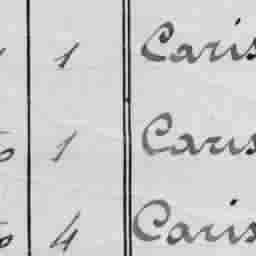 1 Caris
1 Caris
4 Caris